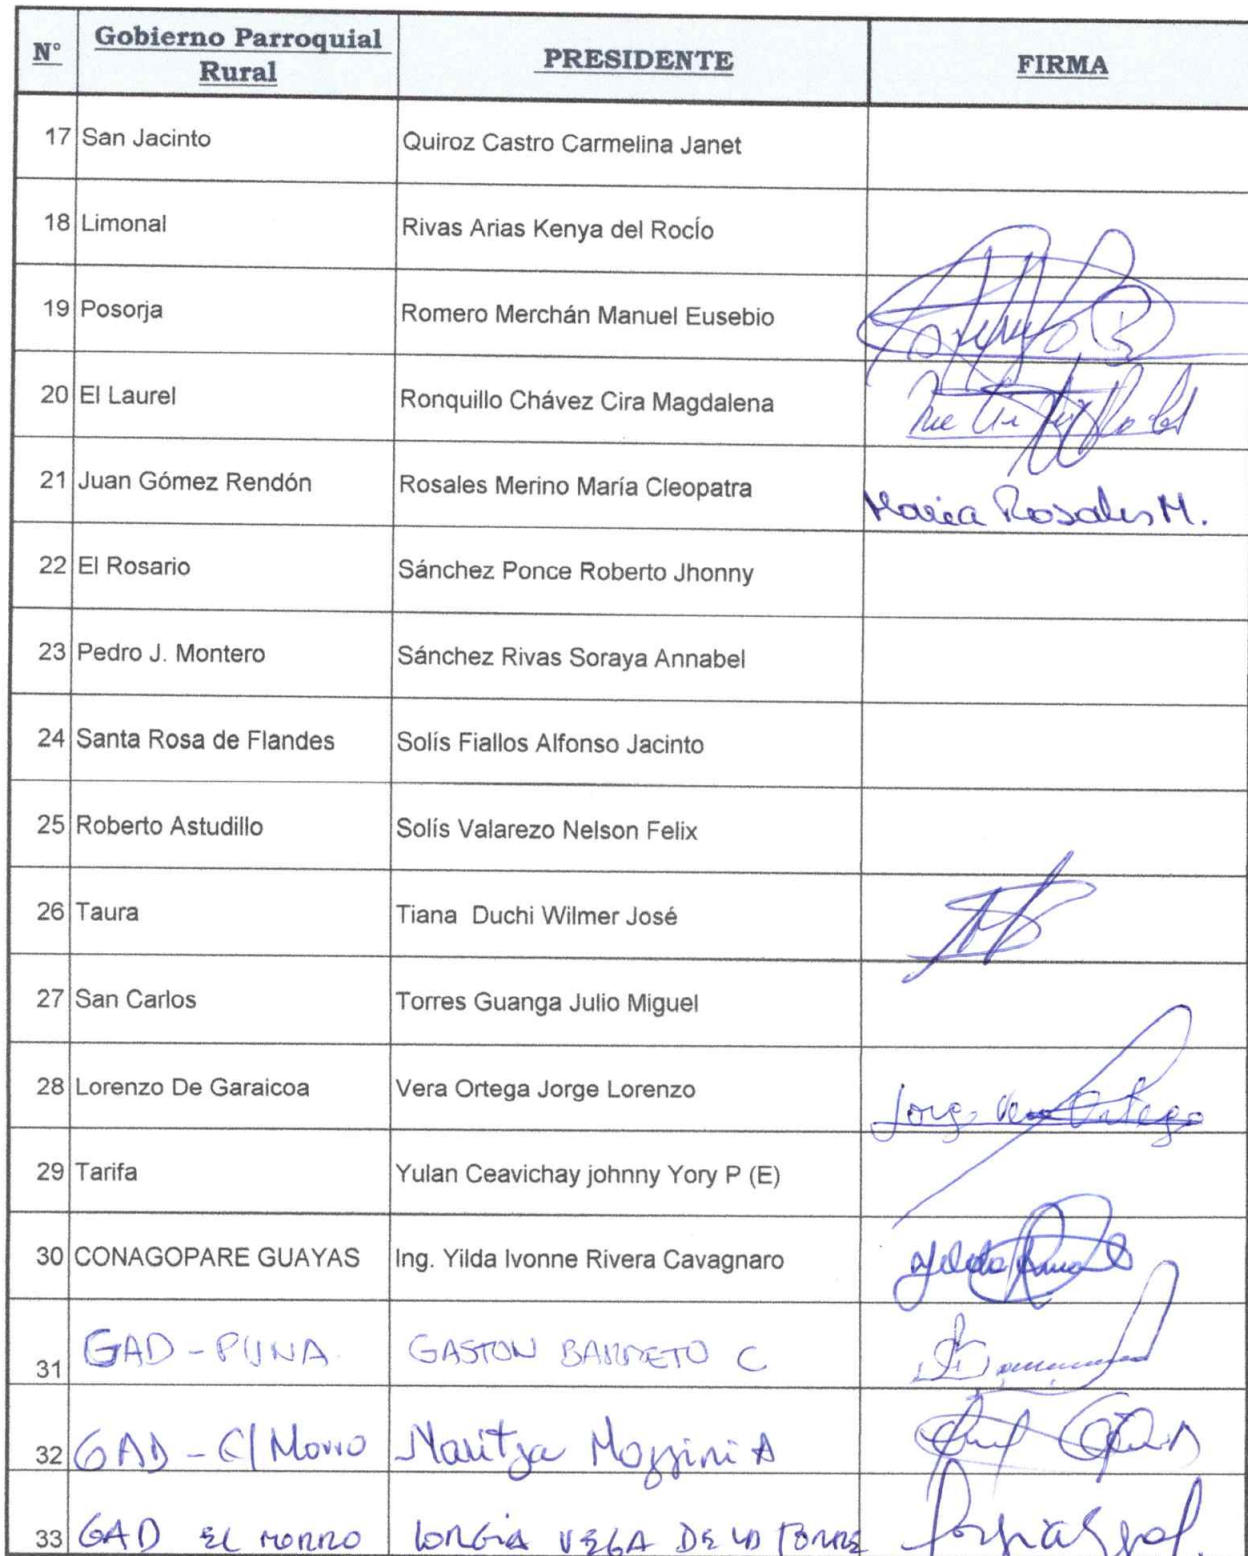 N° Gobierno Parroquial Rural PRESIDENTE FIRMA
17 San Jacinto Quiroz Castro Carmelina Janet
18 Limonal Rivas Arias Kenya del Rocío
19 Posorja Romero Merchán Manuel Eusebio
20 El Laurel Ronquillo Chávez Cira Magdalena
21 Juan Gómez Rendón Rosales Merino María Cleopatra Maria Rosales M.
22 El Rosario Sánchez Ponce Roberto Jhonny
23 Pedro J. Montero Sánchez Rivas Soraya Annabel
24 Santa Rosa de Flandes Solís Fiallos Alfonso Jacinto
25 Roberto Astudillo Solís Valarezo Nelson Felix
26 Taura Tiana Duchi Wilmer José
27 San Carlos Torres Guanga Julio Miguel
28 Lorenzo De Garaicoa Vera Ortega Jorge Lorenzo Jorge Vera Ortega
29 Tarifa Yulan Ceavichay johnny Yory P (E)
30 CONAGOPARE GUAYAS Ing. Yilda Ivonne Rivera Cavagnaro
31 GAD - PUNA GASTON BARRETO C
32 GAD - C/ Morro Maritza Mozzini A
33 GAD EL MORRO LORGIA VEGA DE LA TORRE